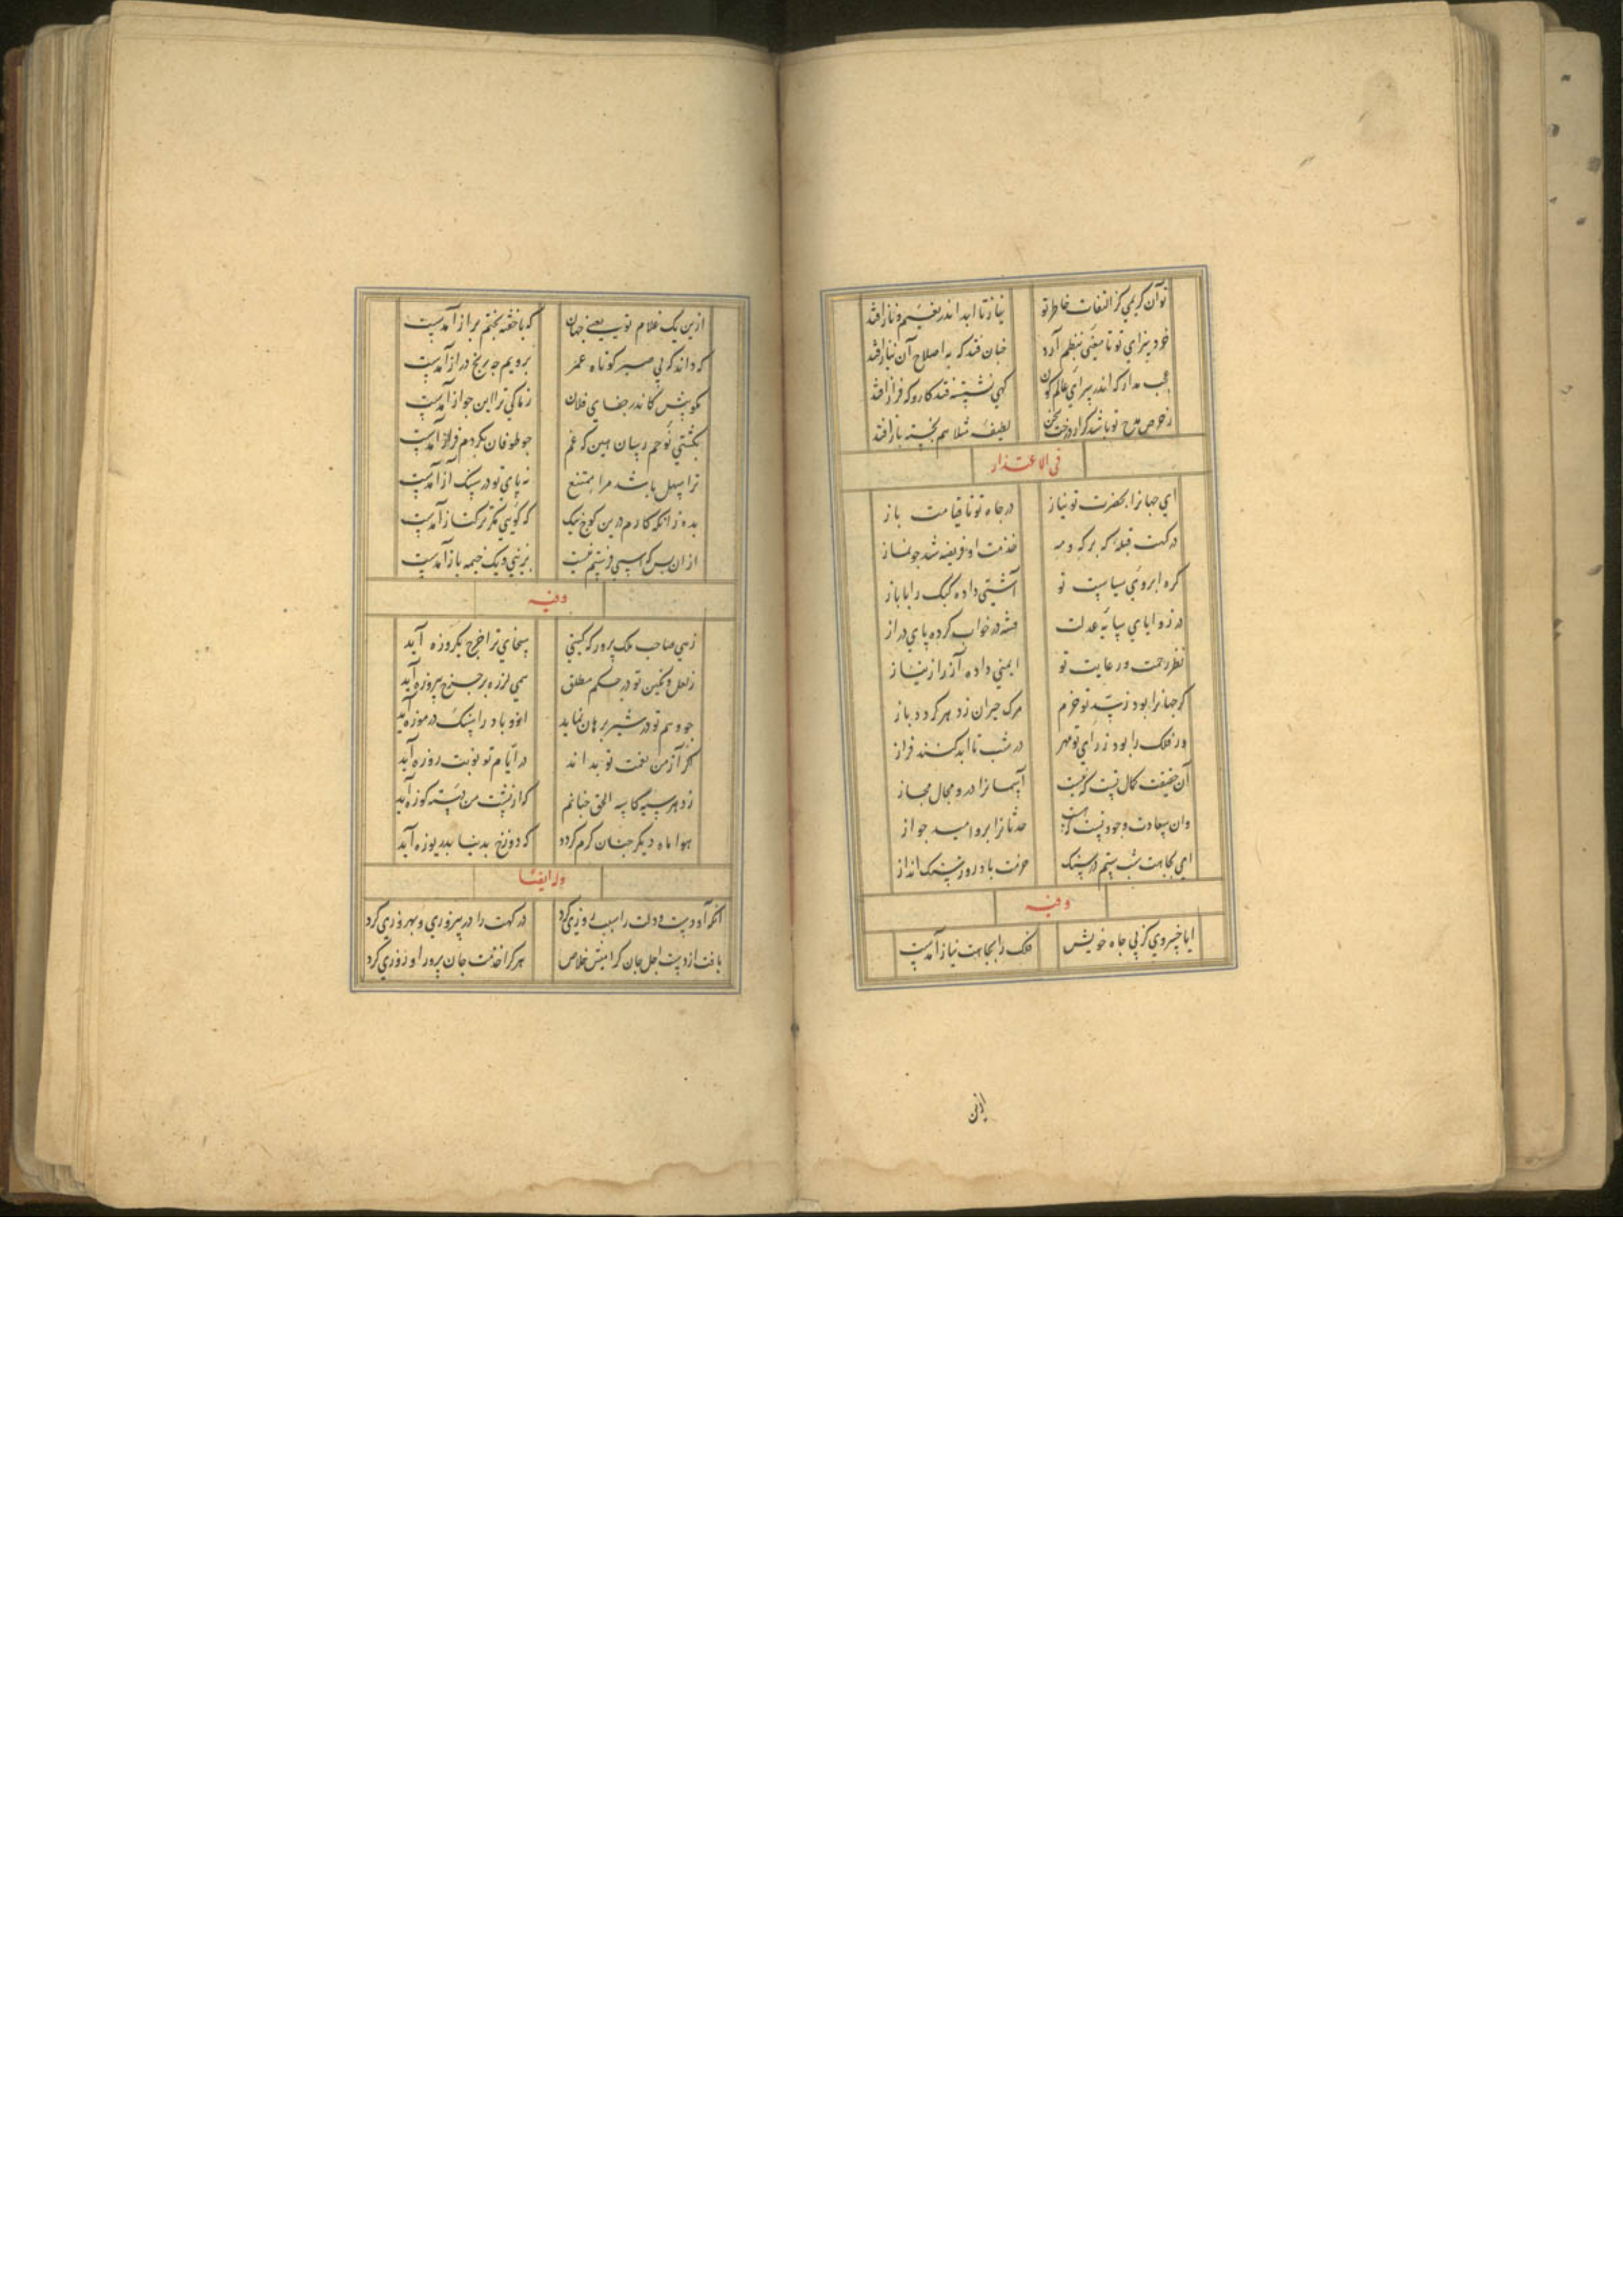 تو آن کریمی کز التفات خاطر تو نیاز تا ابد اندر نعیم و ناز افتد
خرد بنزای تو تا معنی بنظم آرد چنان فتد که به اصلاح آن نیاز افتد
عجب مدار که اندر سرای عالم کون کهی نشیب فتد کار و که فراز افتد
ز حرص مدح تو باشد کز درخت سخن لطیفه مثلا هم نپخته باز افتد
فی الاعتذار
ای جهانرا بحضرت تو نیاز در جاه تو تا قیامت باز
درکهت قبله که بر که و مه خدمت او فریضه شد چو نماز
کره ابروی سیاست تو آشتی داده کبک را با باز
در زوایای سایه عدلت فتنه در خواب کرده پای دراز
نظر رحمت و رعایت تو ایمنی داده آز را از نیاز
کر جهانرا بود ز تو خرم مرک حیران ز دهر کردد باز
ور فلک را بود ز رای تو مهر در شب تا ابد کنند فراز
آن حقیقت کمال تست که نیست آسمانرا درو مجال مجاز
وان سعادت وجود تست که نیست حدثانرا برو امید جواز
ای بجاهت شب ستم در سنک حرمت باد روز سنک انداز
وفیه
ایا خسروی کز پی جاه خویش فلک را بجاهت نیاز آمدست
ازین
ازین یک غلام تو یعنی جهان که با خفته بختم براز آمدست
که داند که بی صبر کوتاه عمر برویم چه رنج دراز آمدست
مکویش کاندر جفای فلان زمانکی ترا این جواز آمدست
بکشتی نوحم رسان هین که غم چو طوفان بکردم فراز آمدست
ترا سهل باشد مرا ممتنع نه پای تو در سنک آز آمدست
بده زانکه کارم درین کوچ تنک که کویی تکرتر کتاز آمدست
از ان پس که اسبی و فرشیم نیست بزینی و یک خیمه باز آمدست
وفیه
زهی صاحب ملک پرور که کیتی سخای ترا خرج یکروزه آید
ز لعل و نکین تو در حکم مطلق همی لرزه بر جزع پیروزه آید
چو وسم تو در سیر برهان نماید ازو باد را سنک در موزه آید
اکر آز من نعمت تو بداند در ایام تو نوبت روزه آید
ز دهر سیه کاسه الحق چنانم که از پشت من دسته کوزه آید
هوا ماه دیکر چنان کرم کردد که دوزخ بدنیا بدریوزه آید
وله ایضا
آنکه او دست و دولت را سبب روزی کرد درکهت را در پیروزی و بهروزی کرد
یافت از دست اجل جان کرامیش خلاص هر کرا خدمت جان پرور او روزی کرد